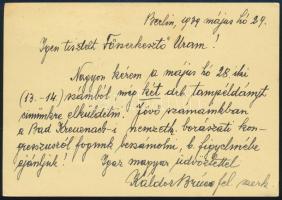 Berlin, 1939 május hó 29.
Igen tisztelt Főszerkesztő Uram!
Nagyon kérem a május hó 28 iki
(13.-14) számból még két drb. támpéldányt
címünkre elküldetni. Jövő számainkban
a Bad Kreuznach-i nemzetk. borászati kon-
gresszusról fogunk beszámolni, b. figyelmébe
ajánljuk! Igaz magyar üdvözlettel
Káldor
fel. szerk.